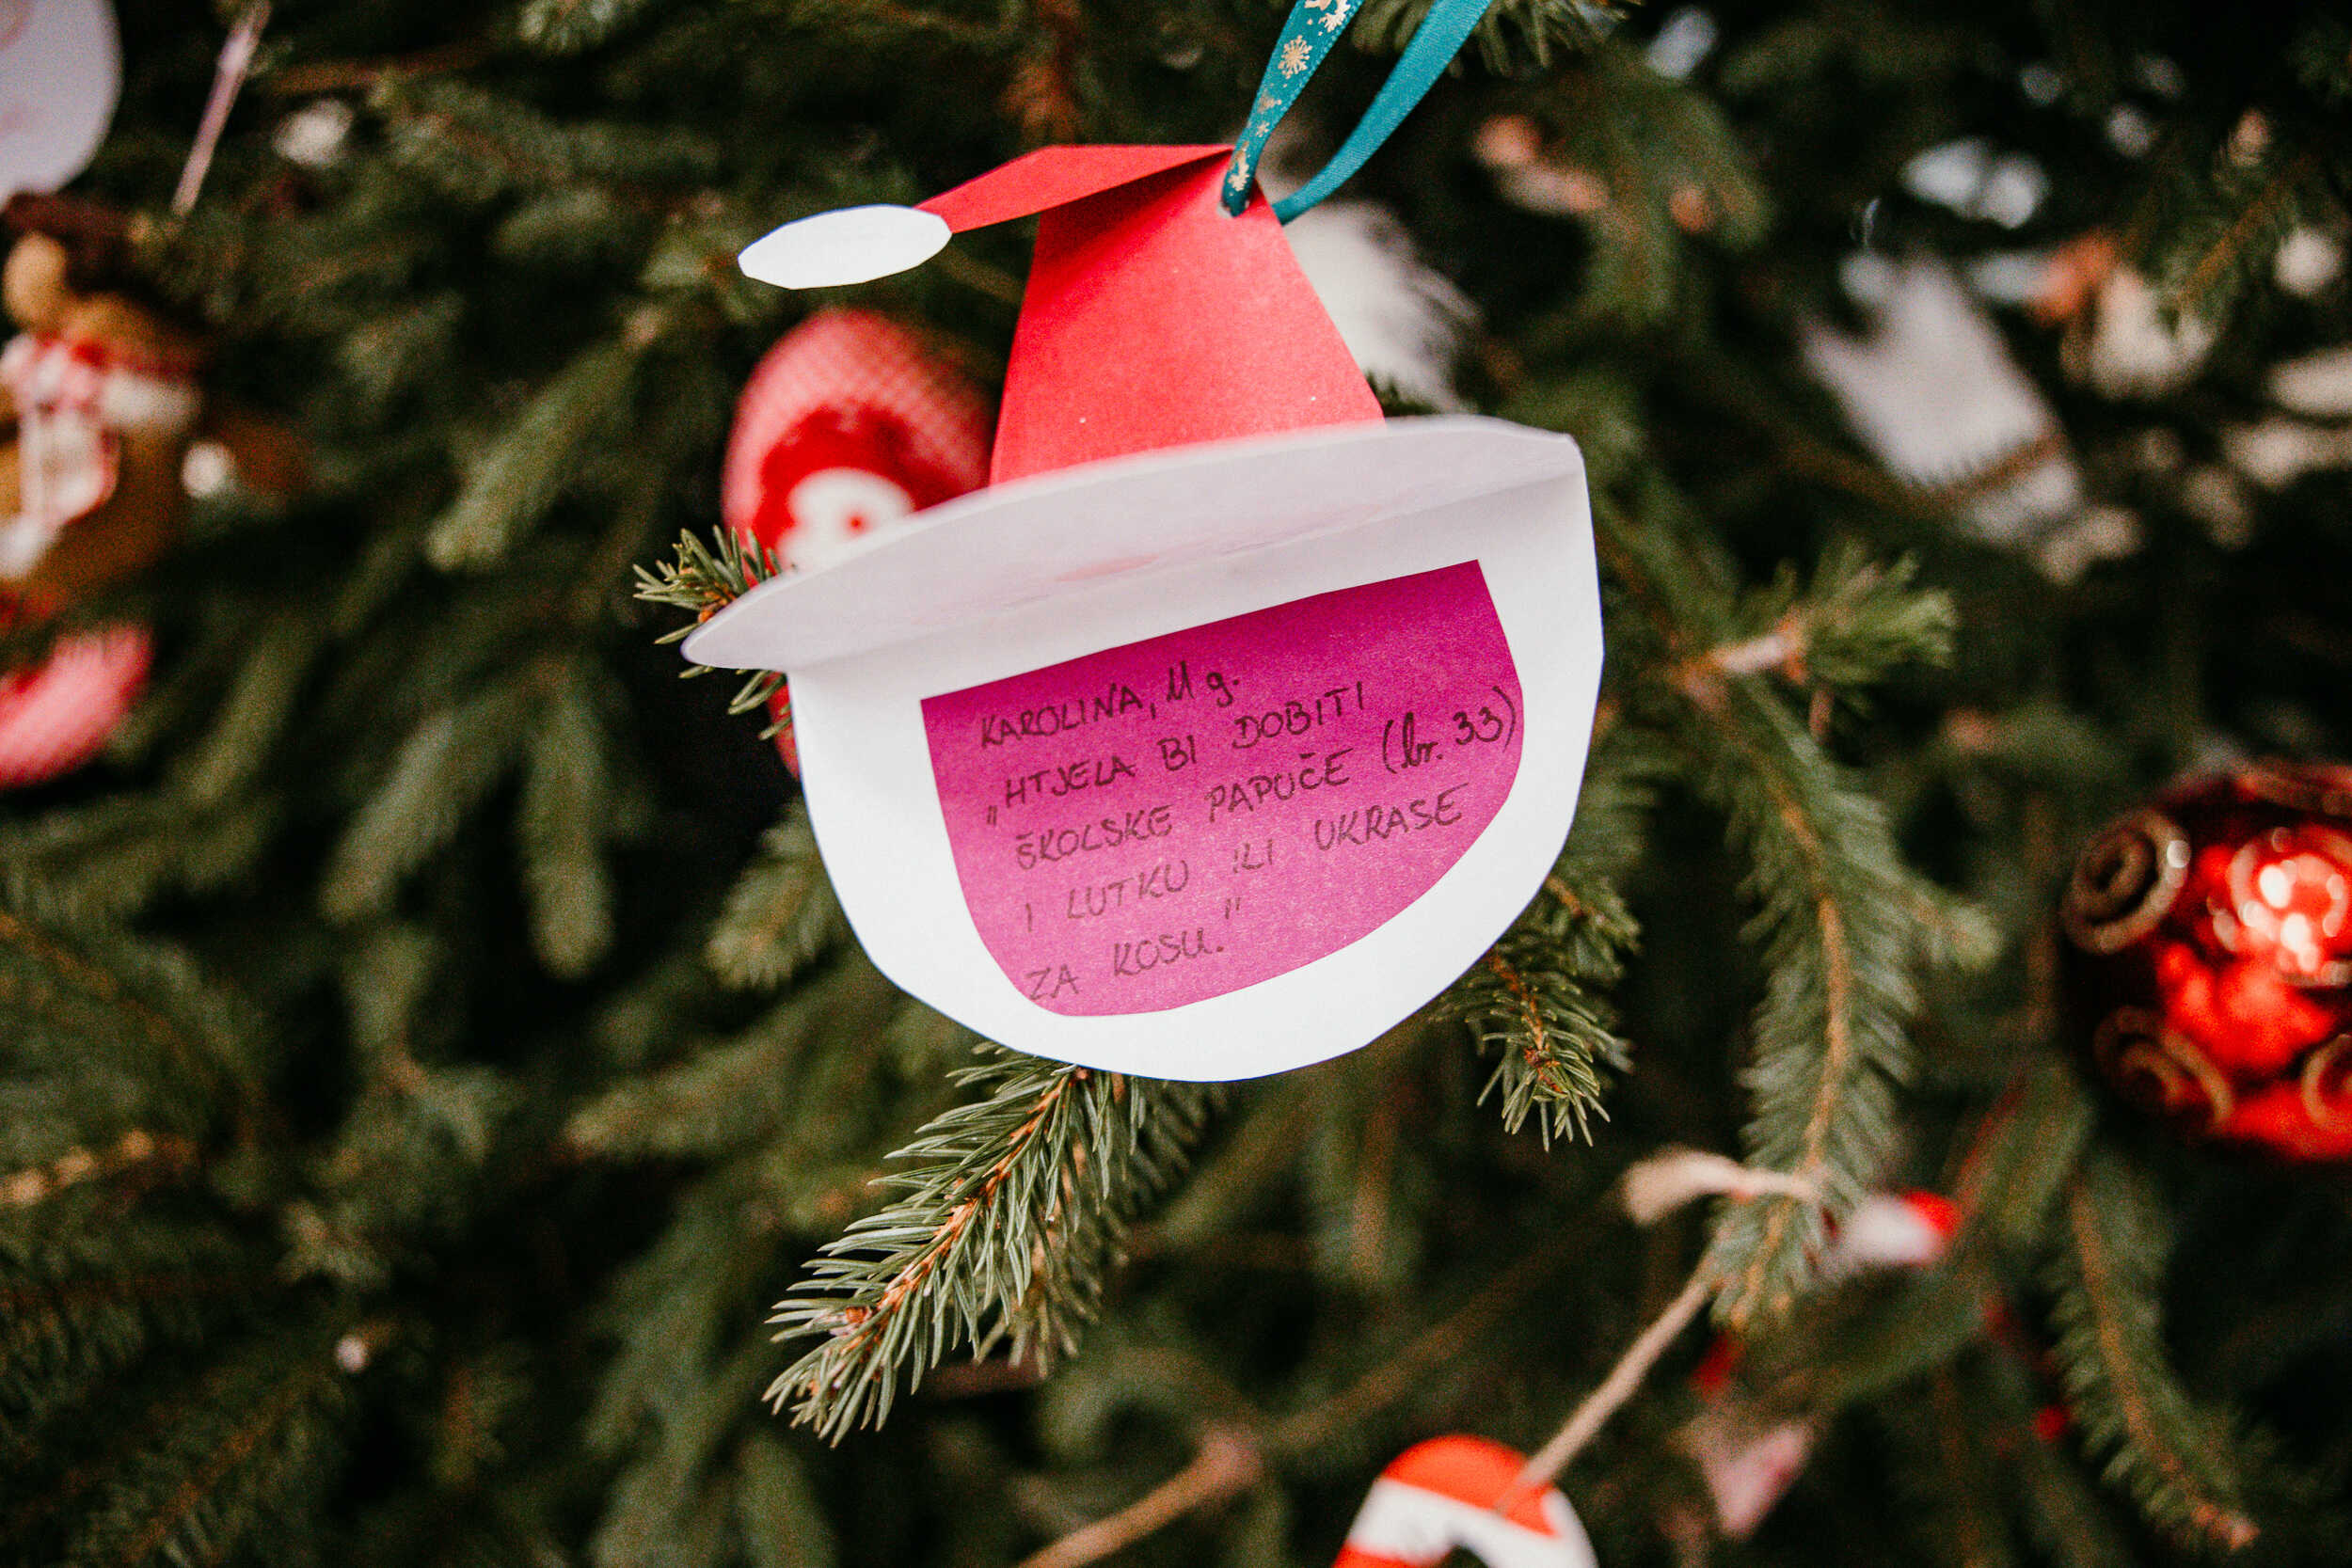 KAROLINA, 11 g.
„HTJELA BI DOBITI
ŠKOLSKE PAPUČE (br. 33)
I LUTKU ILI UKRASE
ZA KOSU."